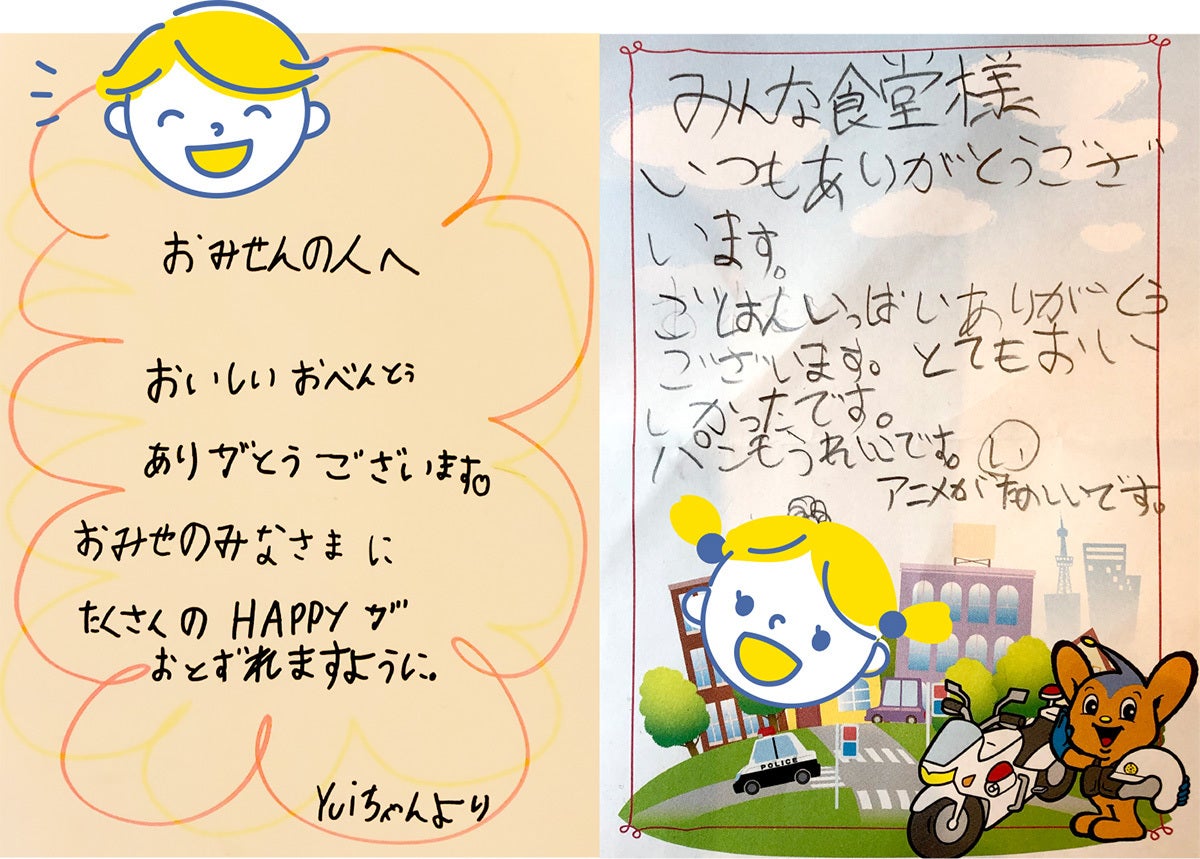 おみせんの人へ
おいしい おべんとう
ありがとうございます。
おみせのみなさま に
たくさんの HAPPY が
おとずれますように。
Yuiちゃんより
みんな食堂様
いつもありがとうござ
います。
ごはんいっぱいありがとう
ございます。とてもおい
しかったです。
パンもうれしいです。 い
アニメがたのしいです。
POLICE